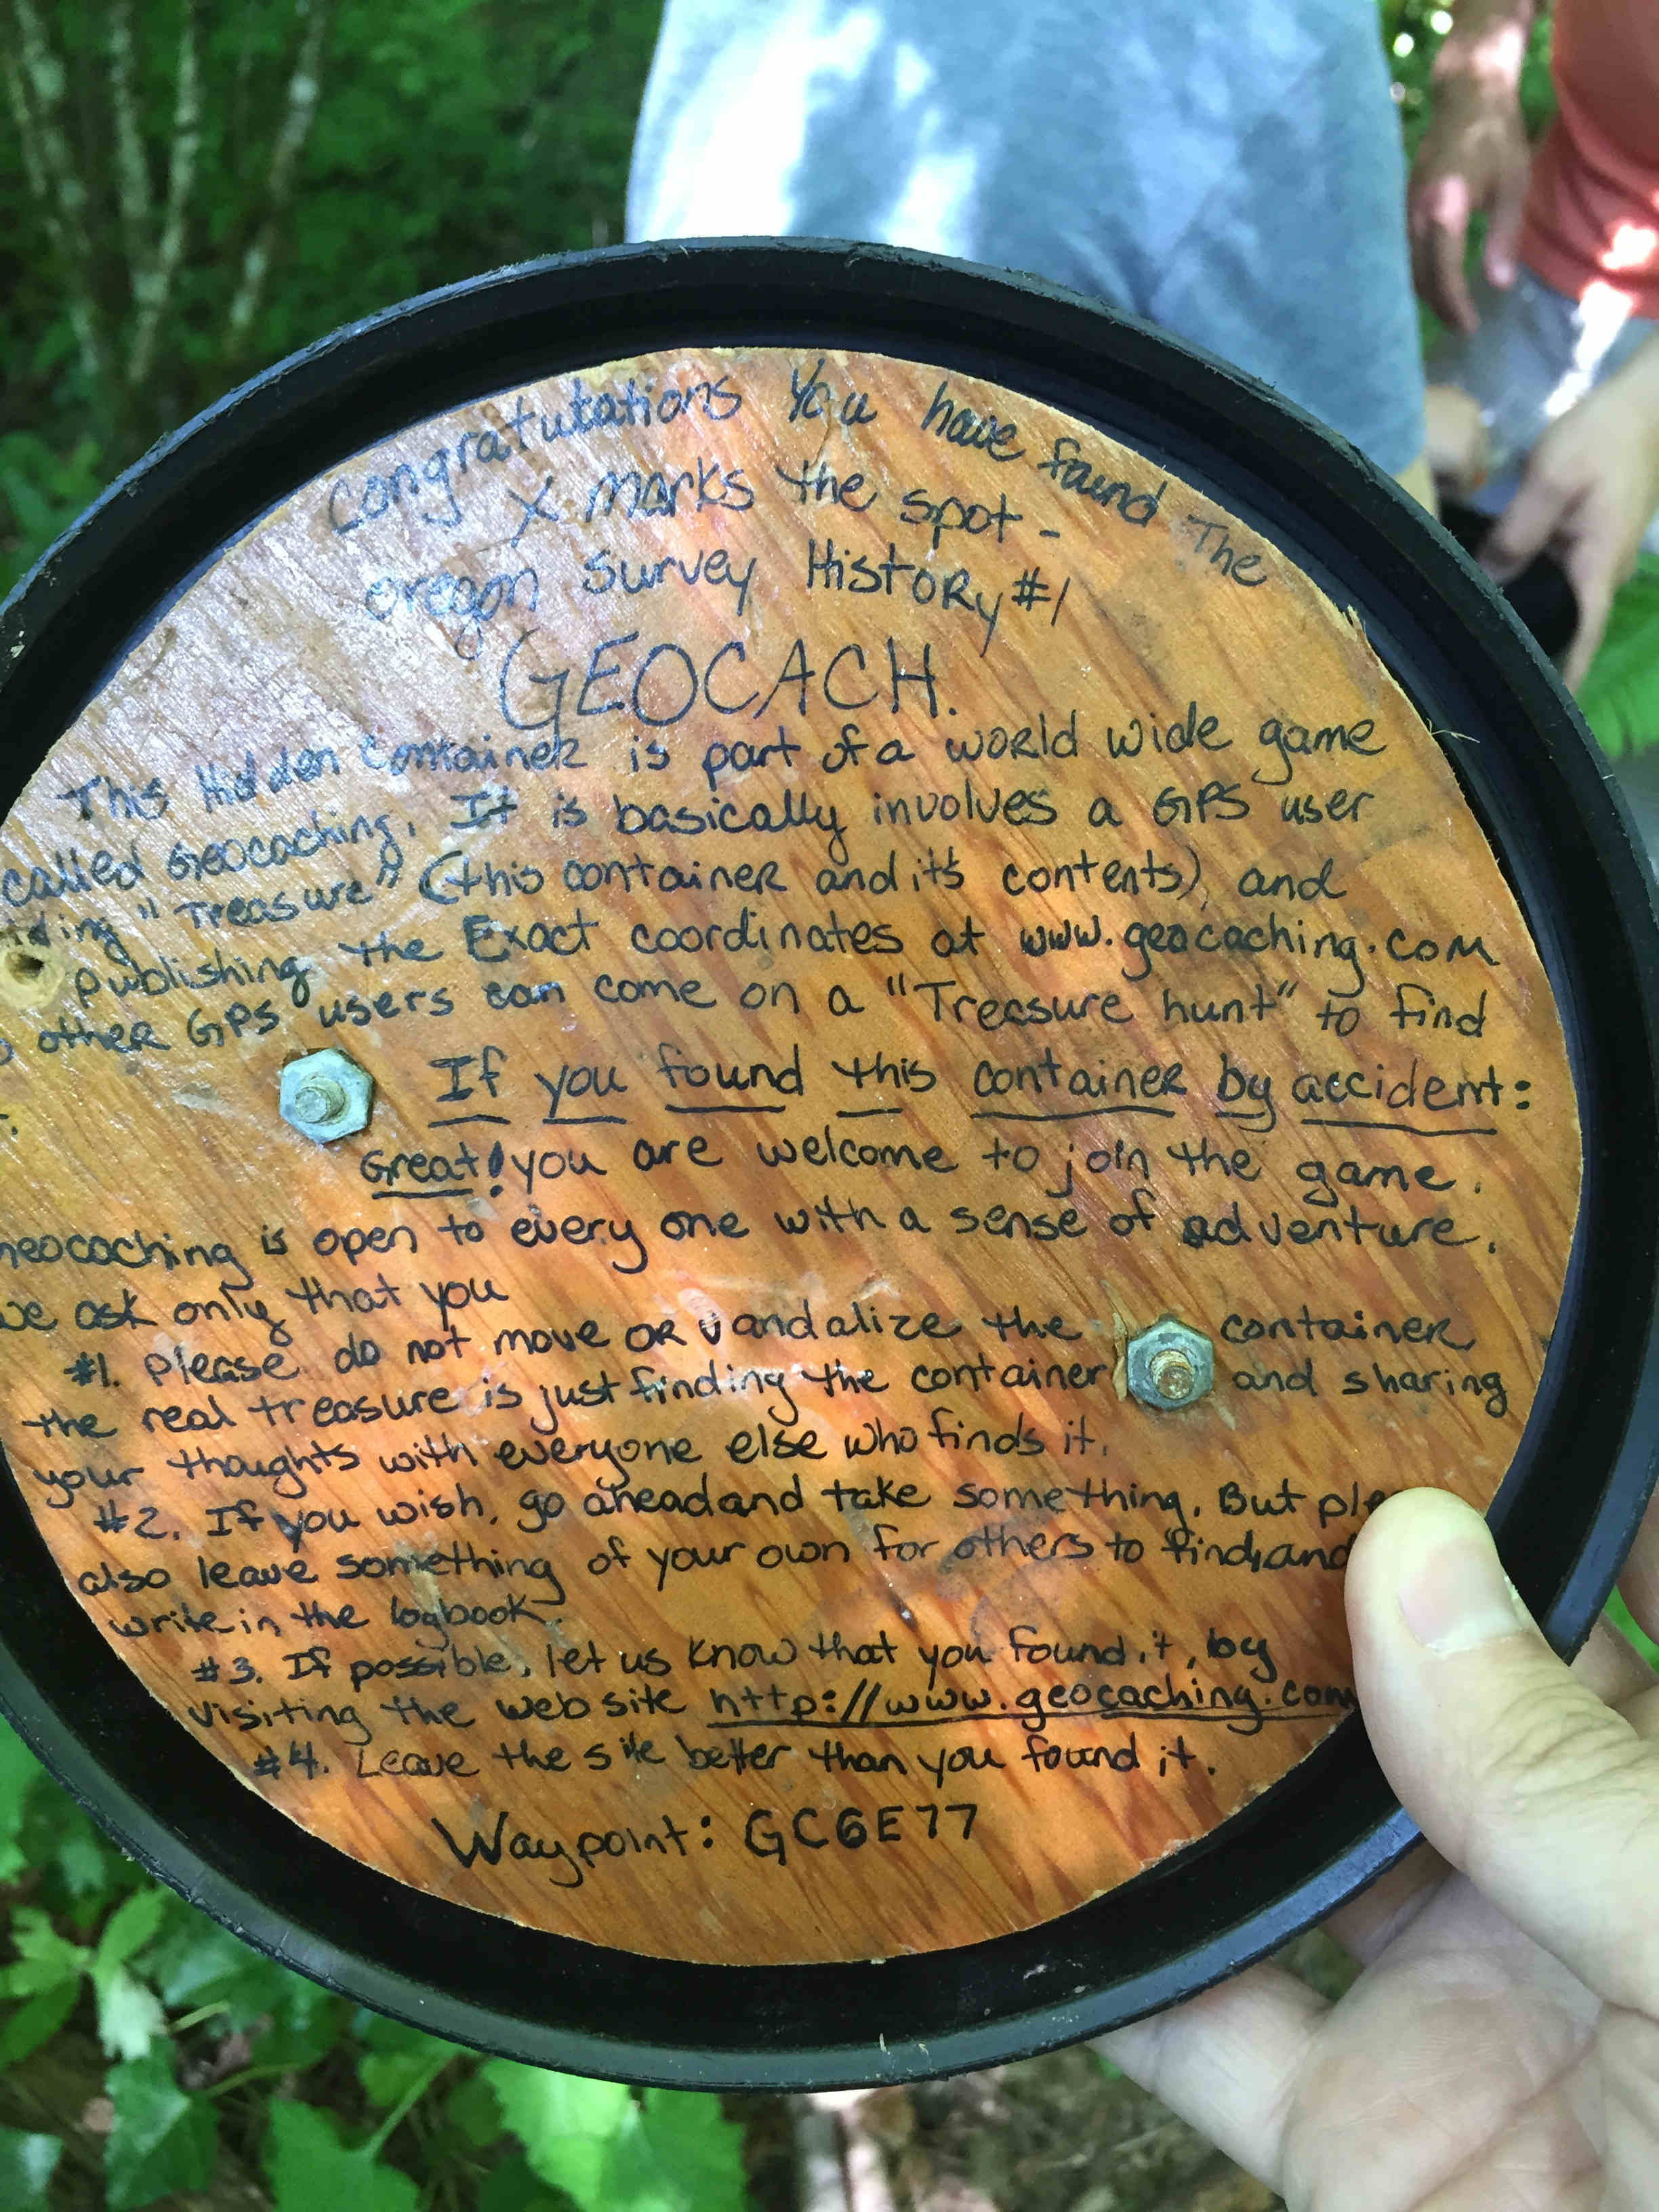 Congratutations You have found The
X marks the spot -
oregon Survey History #1
GEOCACH.
This Hidden Container is part of a world wide game
called Geocaching. It is basically involves a GPS user
iding "Treasure" (this container and it's contents), and
publishing the Exact coordinates at www.geocaching.com
o other GPS users can come on a "Treasure hunt" to find
If you found this container by accident:
Great! you are welcome to join the game.
neocaching is open to every one with a sense of adventure.
we ask only that you
#1. Please do not move or vandalize the container
the real treasure is just finding the container and sharing
your thoughts with everyone else who finds it.
#2. If you wish, go ahead and take something. But ple
also leave something of your own for others to find, and
write in the logbook.
#3. If possible, let us know that you found it, by
visiting the web site http://www.geocaching.com
#4. Leave the site better than you found it.
Waypoint: GC6E77